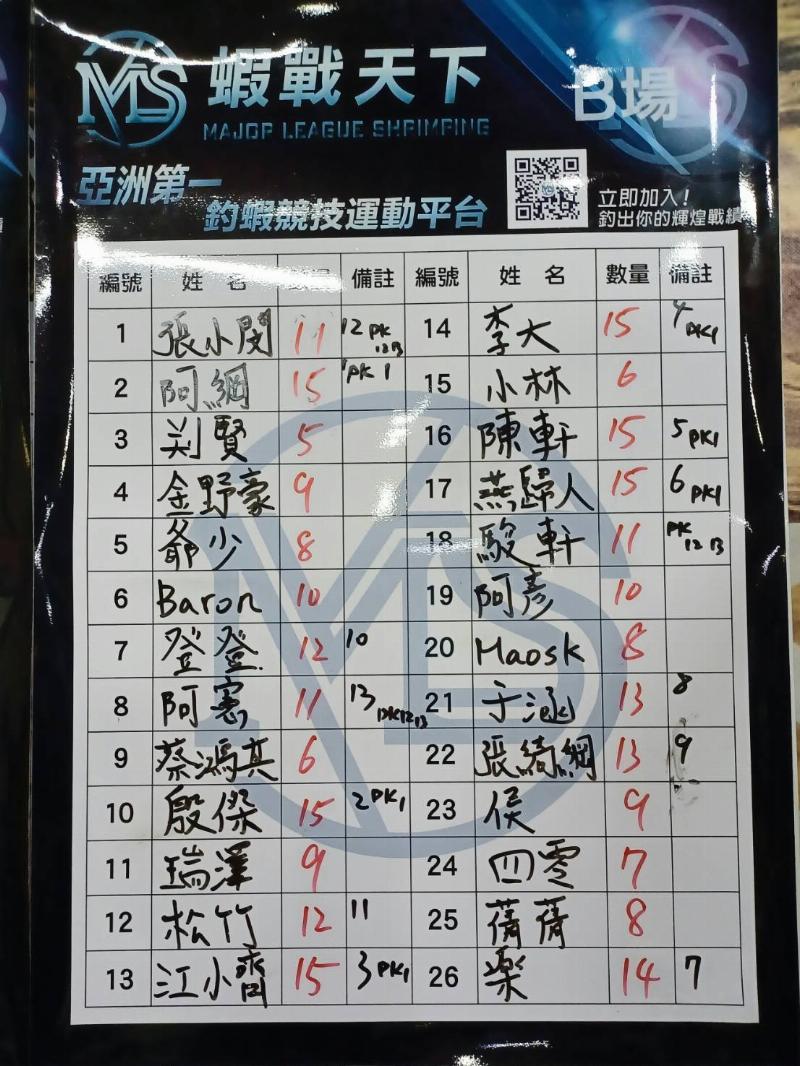 MLS 蝦戰天下 B場
MAJOR LEAGUE SHRIMPING
亞洲第一
釣蝦競技運動平台
立即加入!
釣出你的輝煌戰績
編號 姓名 數量 備註 編號 姓名 數量 備註
1 張小閔 11 12 PK 12 13 14 李大 15 4 PK1
2 阿網 15 1 PK 1 15 小林 6
3 賢 5 16 陳軒 15 5 PK1
4 金野豪 9 17 燕歸人 15 6 PK1
5 爺少 8 18 駿軒 11 PK 12 13
6 Baron 10 19 阿彥 10
7 登登 12 10 20 Maosk 8
8 阿憲 11 13 PK 12 13 21 于涵 13 8
9 蔡鴻其 6 22 張綺網 13 9
10 殷傑 15 2 PK1 23 侯 9
11 瑞澤 9 24 四零 7
12 松竹 12 11 25 蒨蒨 8
13 江小齊 15 3 PK1 26 楽 14 7